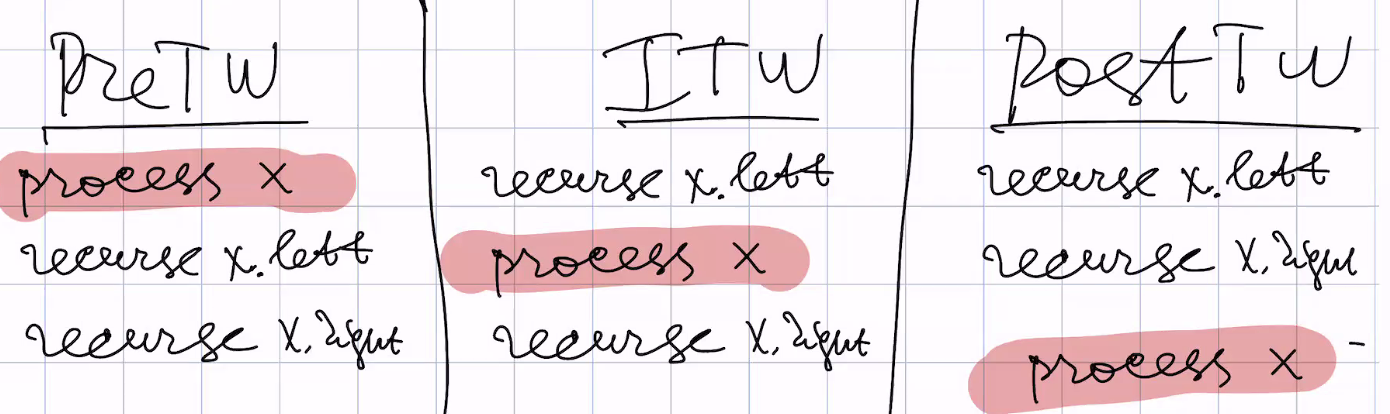 PreTW
process x
recurse x.left
recurse x.right
ITW
recurse x.left
process x
recurse x.right
PostTW
recurse x.left
recurse x.right
process x